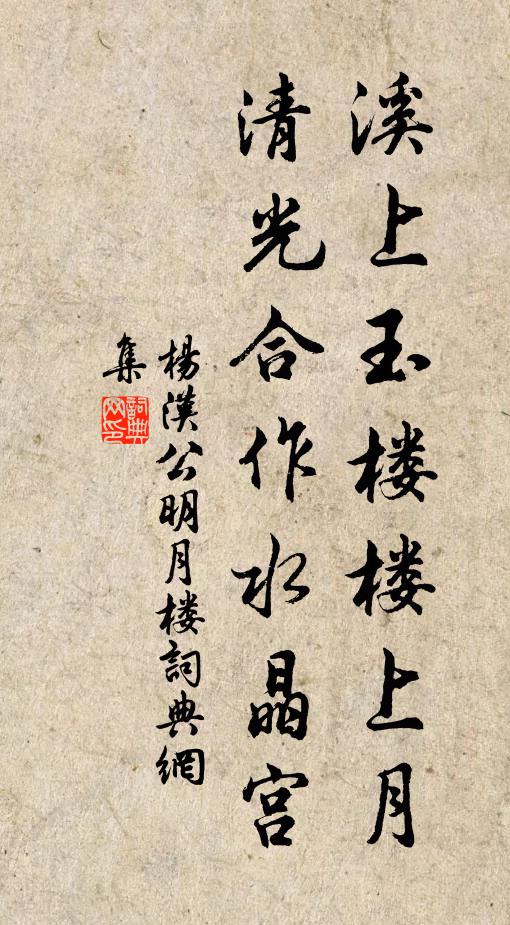 溪上玉楼楼上月
清光合作水晶宫
楊漢公明月楼詞典網
集
詞典
网印